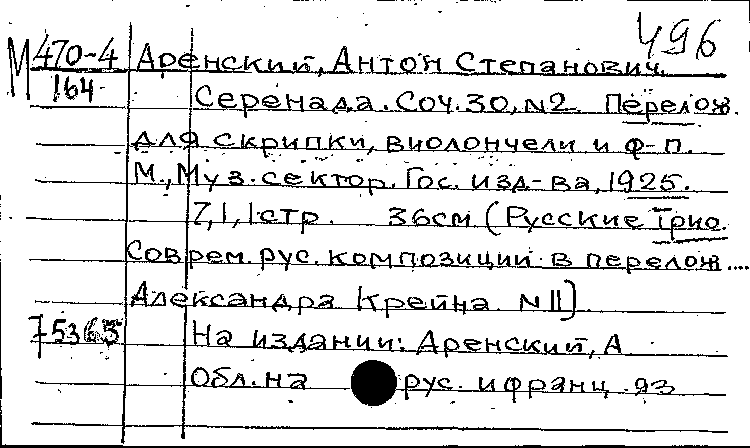 496
М 470-4 Аренский, Антон Степанович.
164 Серенада. Соч. 30, N2. Перелож.
для скрипки, виолончели и ф-п.
М., Муз. сектор. Гос. изд-ва, 1925.
7, 1, 1 стр. 36см (Русские трио.
Соврем. рус. композиции в перелож....
Александра Крейна N II)
75363 На издании: Аренский, А
Обл. на рус. и франц. яз